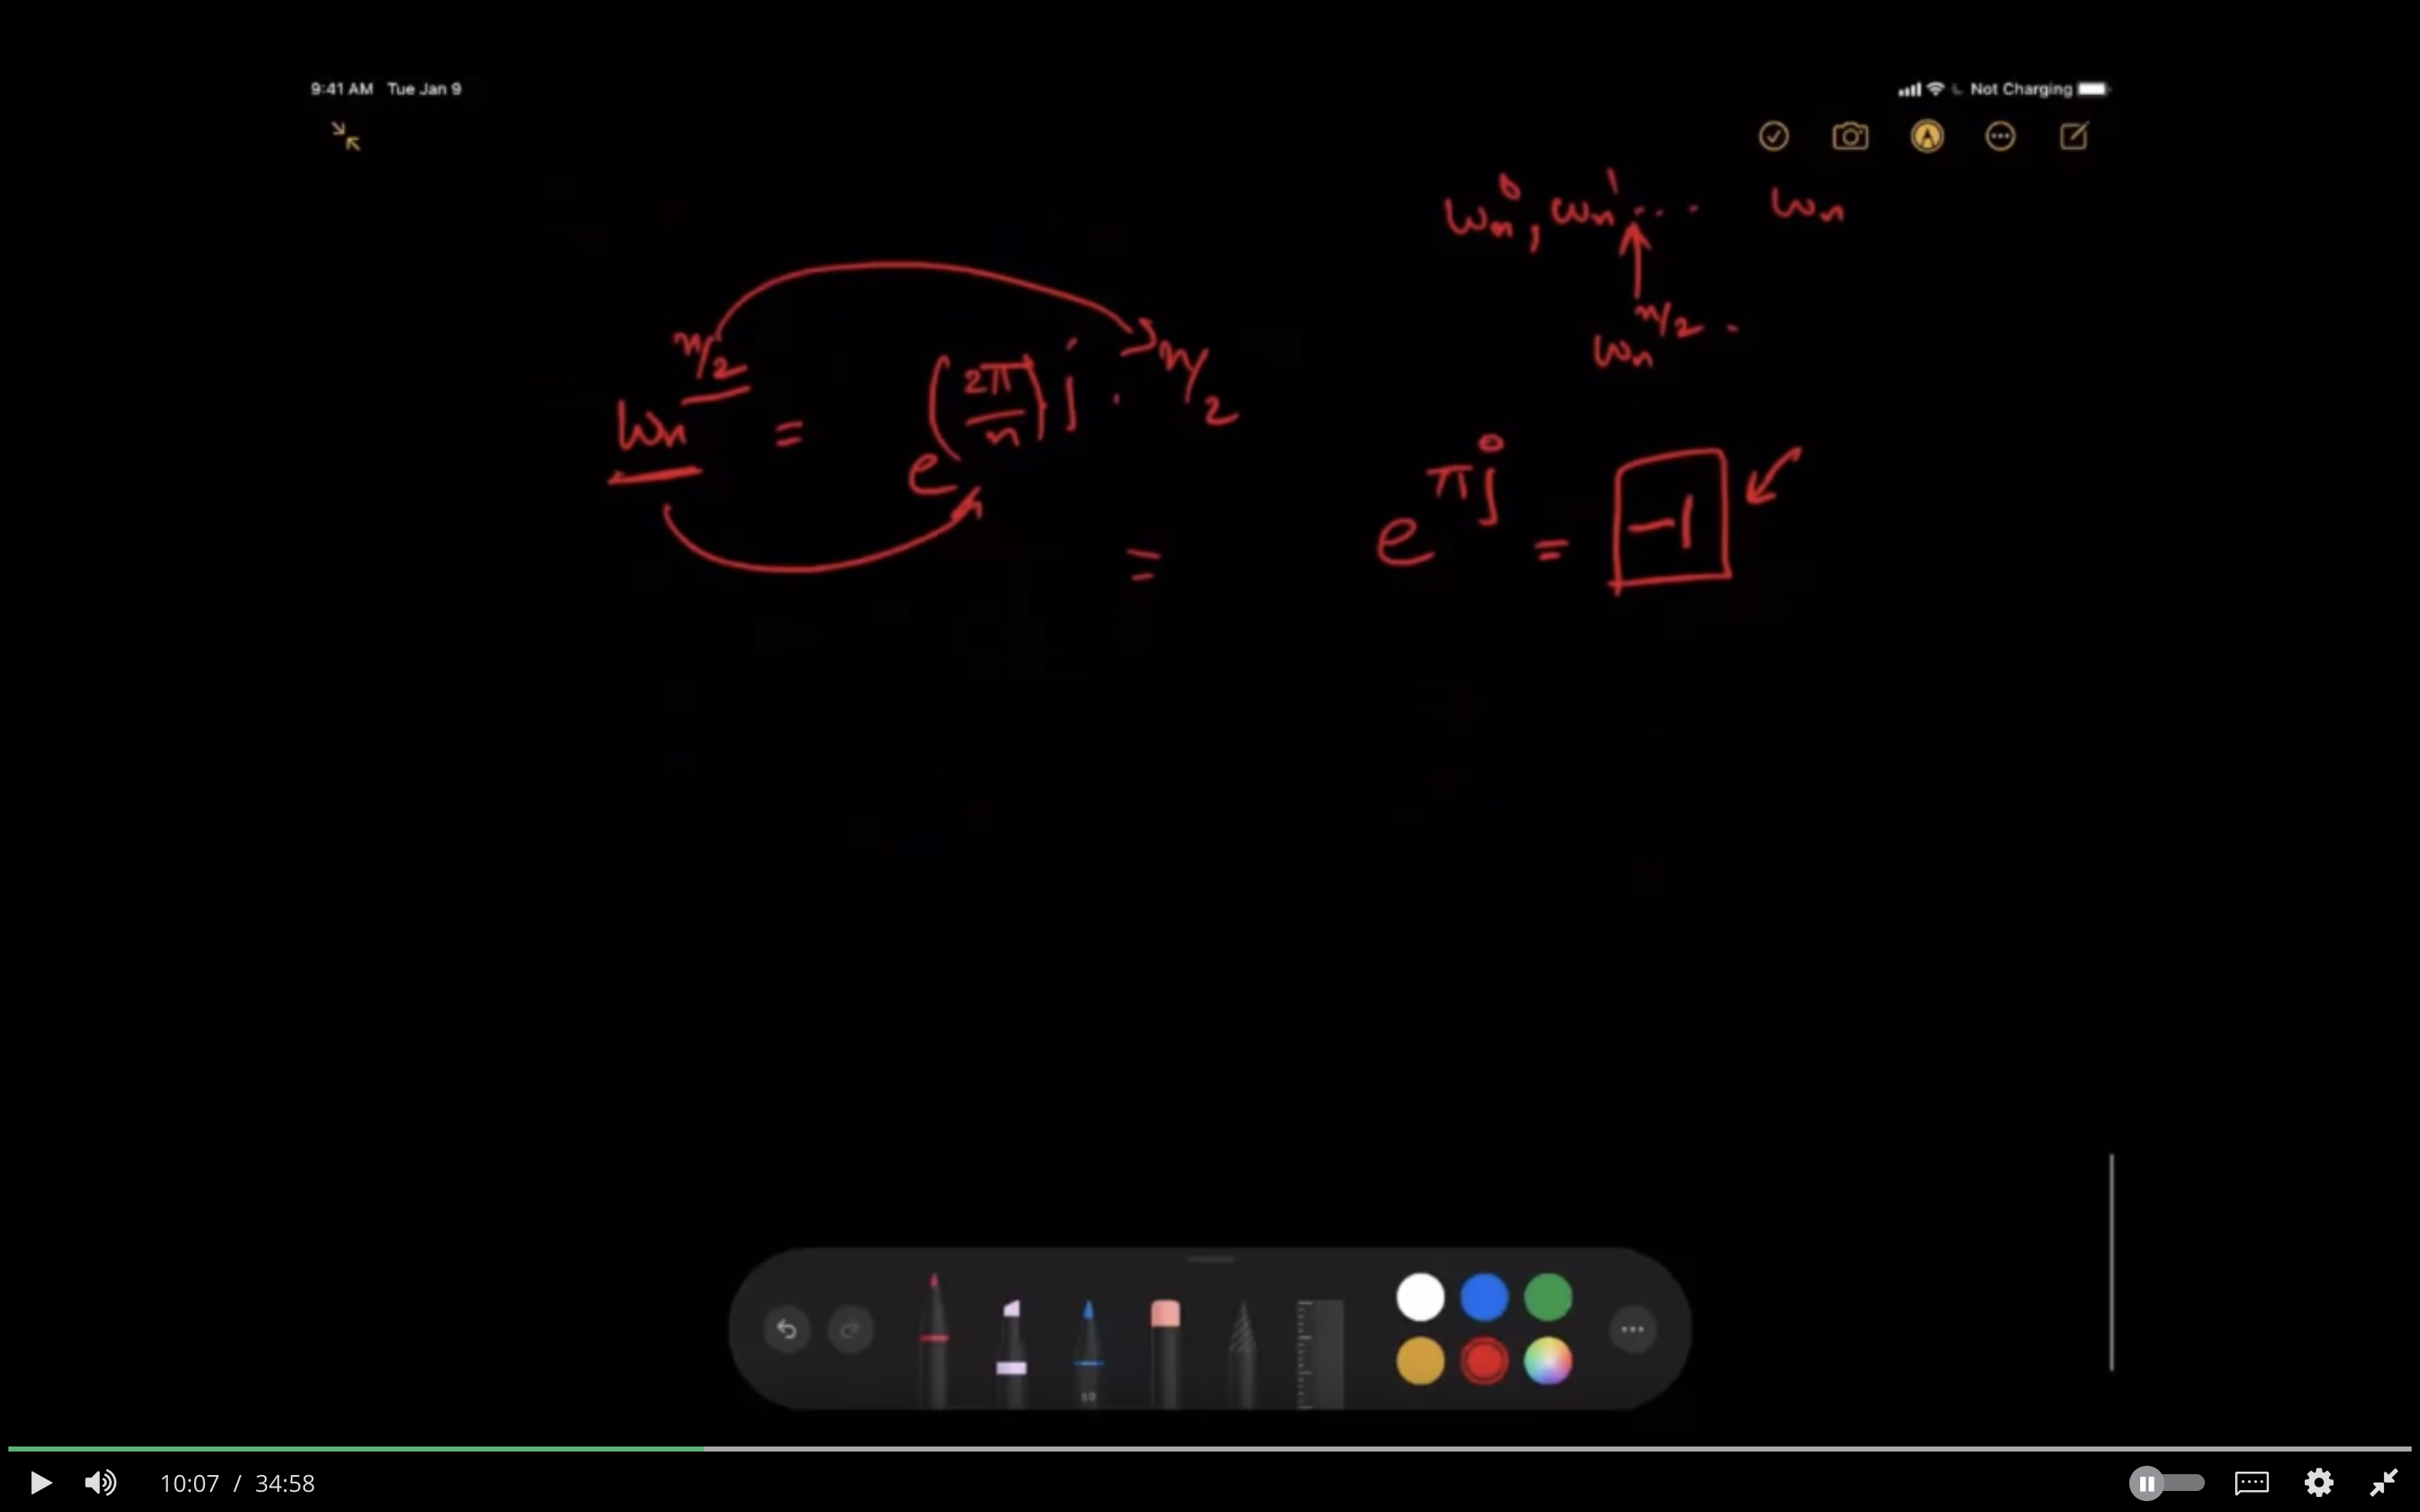 9:41 AM Tue Jan 9
Not Charging
ωn⁰, ωn¹ ... ωn
ωn^(n/2) .
ωn^(n/2) = e^((2π/n) j · n/2)
= e^(πj) = -1
50
10:07 / 34:58